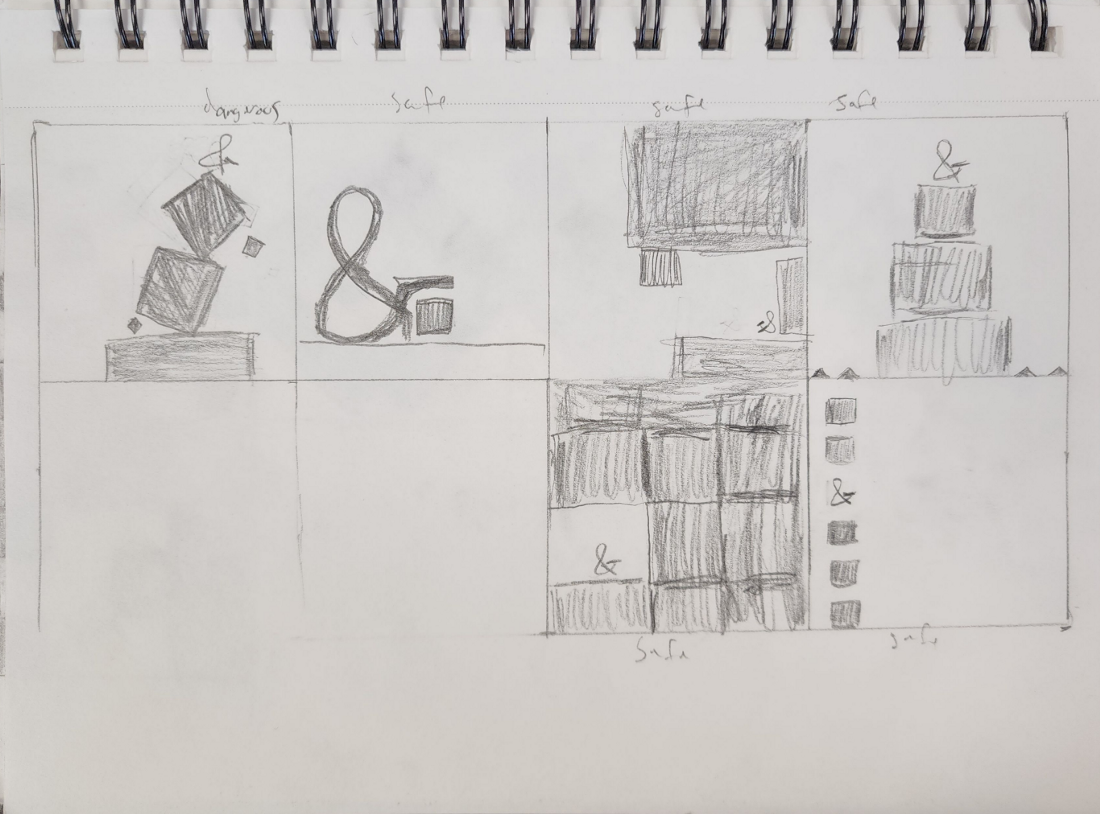 dangerous safe safe safe
& & & &
& &
safe safe